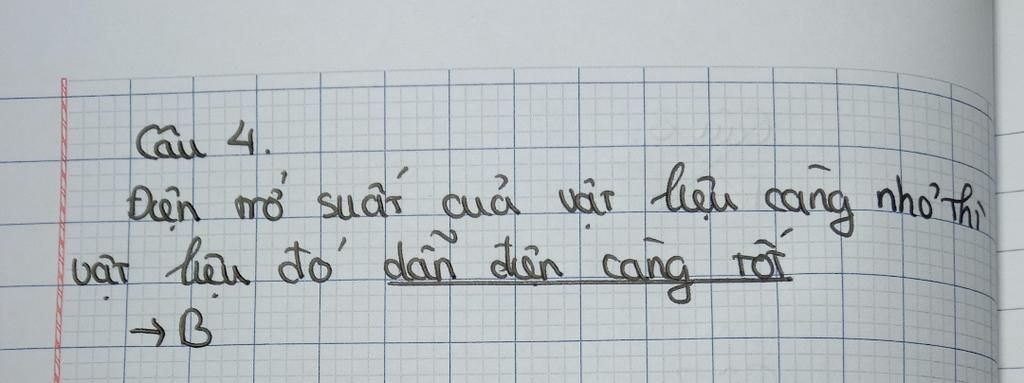 Câu 4.
Điện trở suất của vật liệu càng nhỏ thì
vật liệu đó dẫn điện càng tốt
→ B